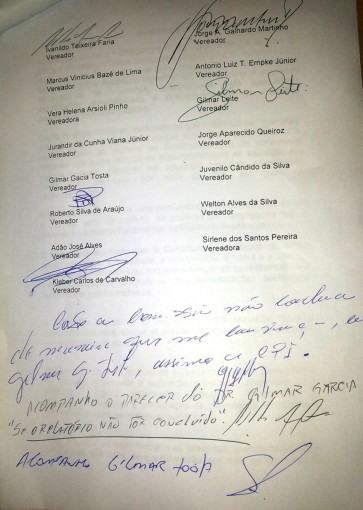 Ivanildo Teixeira Faria
Vereador
Marcus Vinicius Bazé de Lima
Vereador
Vera Helena Arsioli Pinho
Vereadora
Jurandir da Cunha Viana Júnior
Vereador
Gilmar Gacia Tosta
Vereador
Roberto Silva de Araújo
Vereador
Adão José Alves
Vereador
Kleber Carlos de Carvalho
Vereador
Jorge A. Galhardo Martinho
Vereador
Antonio Luiz T. Empke Júnior
Vereador
Gilmar Leite
Gilmar Leite
Vereador
Jorge Aparecido Queiroz
Vereador
Juvenilo Cândido da Silva
Vereador
Welton Alves da Silva
Vereador
Sirlene dos Santos Pereira
Vereadora
Caso a não
de que me
assino a CPI.
ACOMPANHO O PARECER DO DR GILMAR GARCIA
"SE O RELATÓRIO NÃO FOR CONCLUIDO".
ACOMPANHO GILMAR